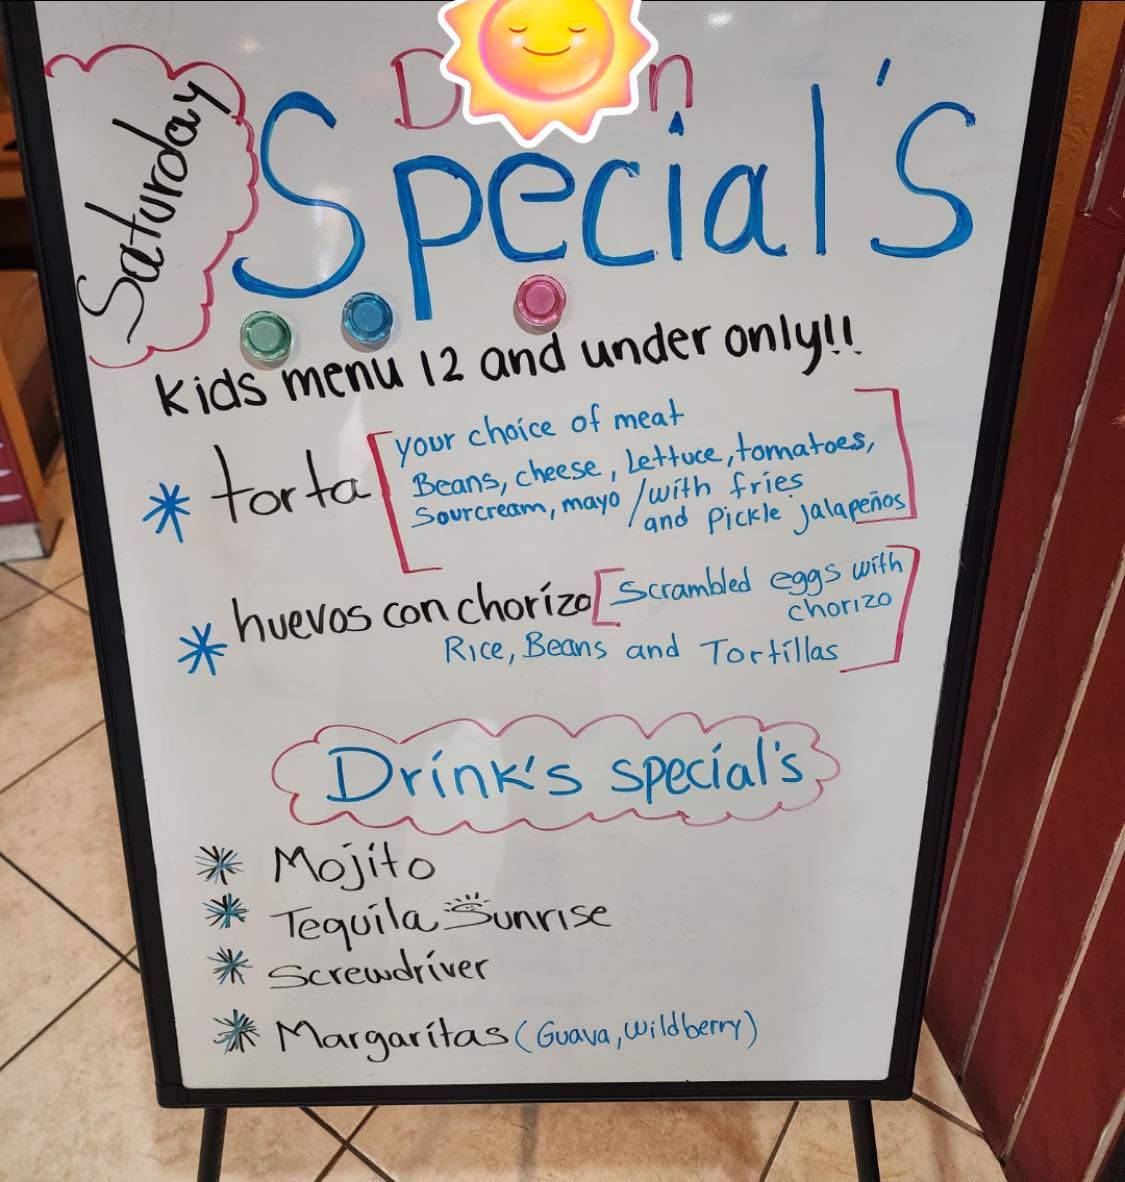 Saturday
Special's
Kids menu 12 and under only!!
torta
your choice of meat
Beans, cheese, Lettuce, tomatoes,
Sourcream, mayo / with fries
and Pickle jalapeños
huevos con chorizo
Scrambled eggs with
chorizo
Rice, Beans and Tortillas
Drink's special's
Mojito
Tequila Sunrise
Screwdriver
Margaritas (Guava, Wildberry)